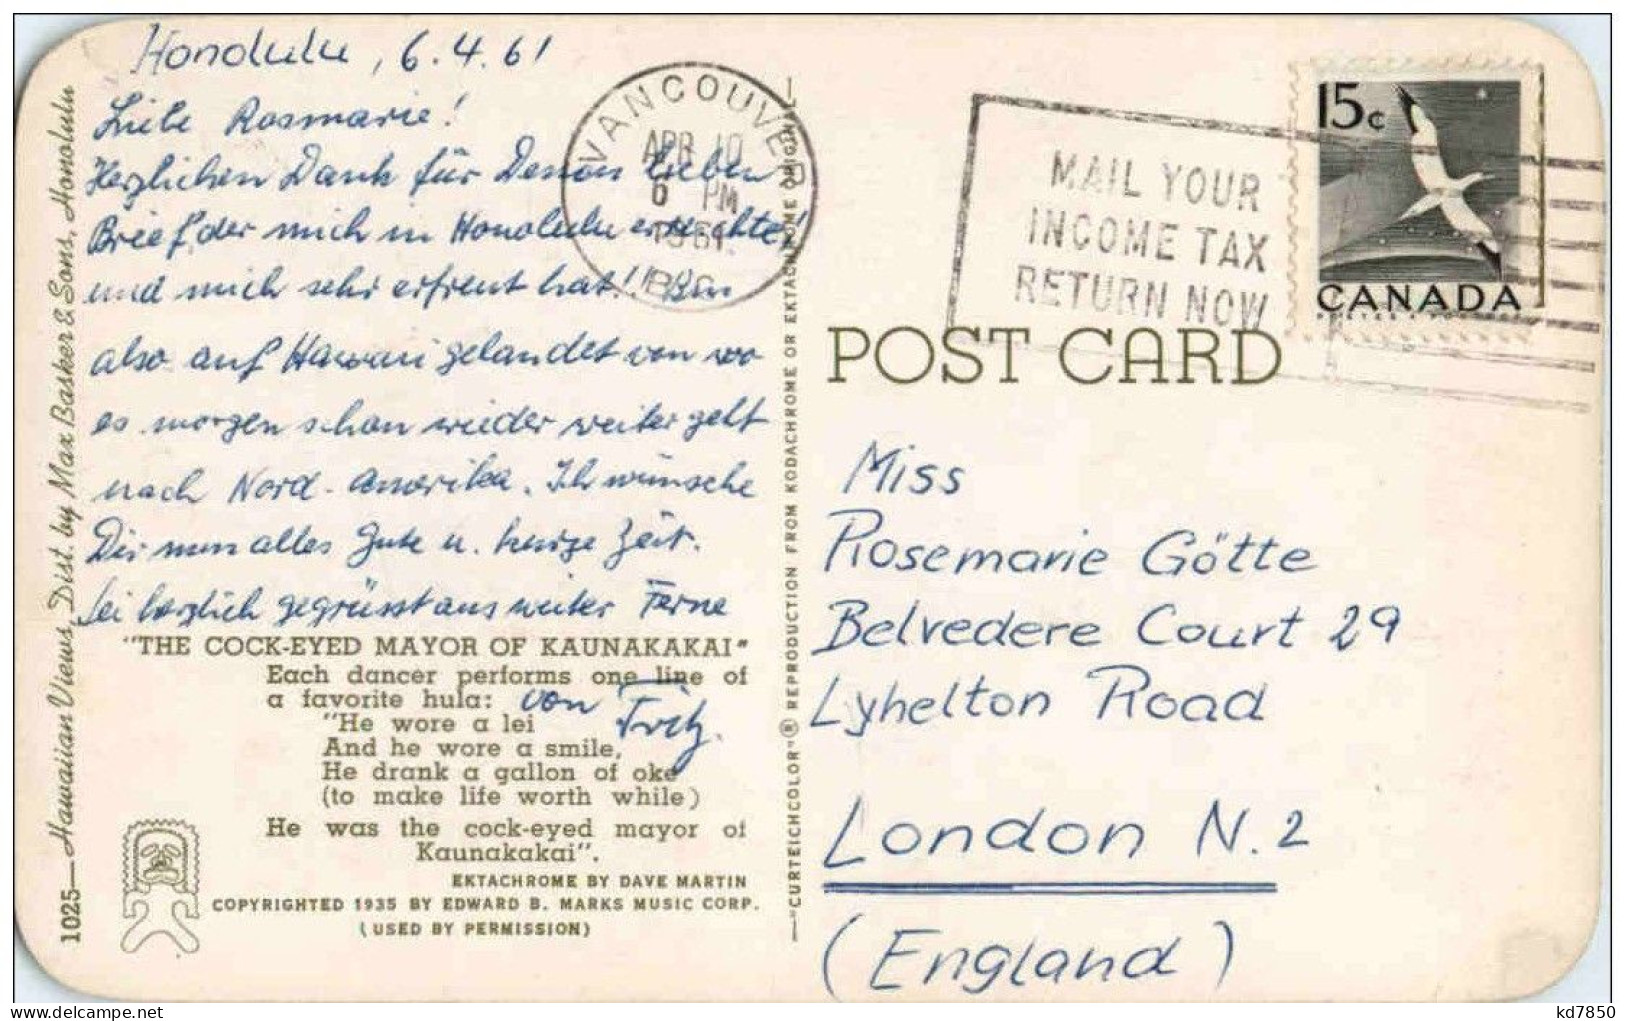 Honolulu, 6.4.61
Liebe Rosmarie!
Herzlichen Dank für Deinen lieben
Brief, der mich in Honolulu erreichte!
und mich sehr erfreut hat!! Bin
also auf Hawaii gelandet von wo
es morgen schon wieder weiter geht
nach Nord-Amerika. Ich wünsche
Dir nun alles Gute u. kurze Zeit.
Sei herzlich gegrüsst aus weiter Ferne
von Fritz.
"THE COCK-EYED MAYOR OF KAUNAKAKAI"
Each dancer performs one line of
a favorite hula:
"He wore a lei
And he wore a smile,
He drank a gallon of oke
(to make life worth while)
He was the cock-eyed mayor of
Kaunakakai".
EKTACHROME BY DAVE MARTIN
COPYRIGHTED 1935 BY EDWARD B. MARKS MUSIC CORP.
(USED BY PERMISSION)
1025—Hawaiian Views, Dist. by Max Basker & Sons, Honolulu
—"CURTEICHCOLOR"® REPRODUCTION FROM KODACHROME OR EKTACHROME ORIGINAL—
VANCOUVER
APR 10
6 PM
1961
B.C.
MAIL YOUR
INCOME TAX
RETURN NOW
15c
CANADA
POST CARD
Miss
Rosemarie Götte
Belvedere Court 29
Lyhelton Road
London N.2
(England)
kd7850